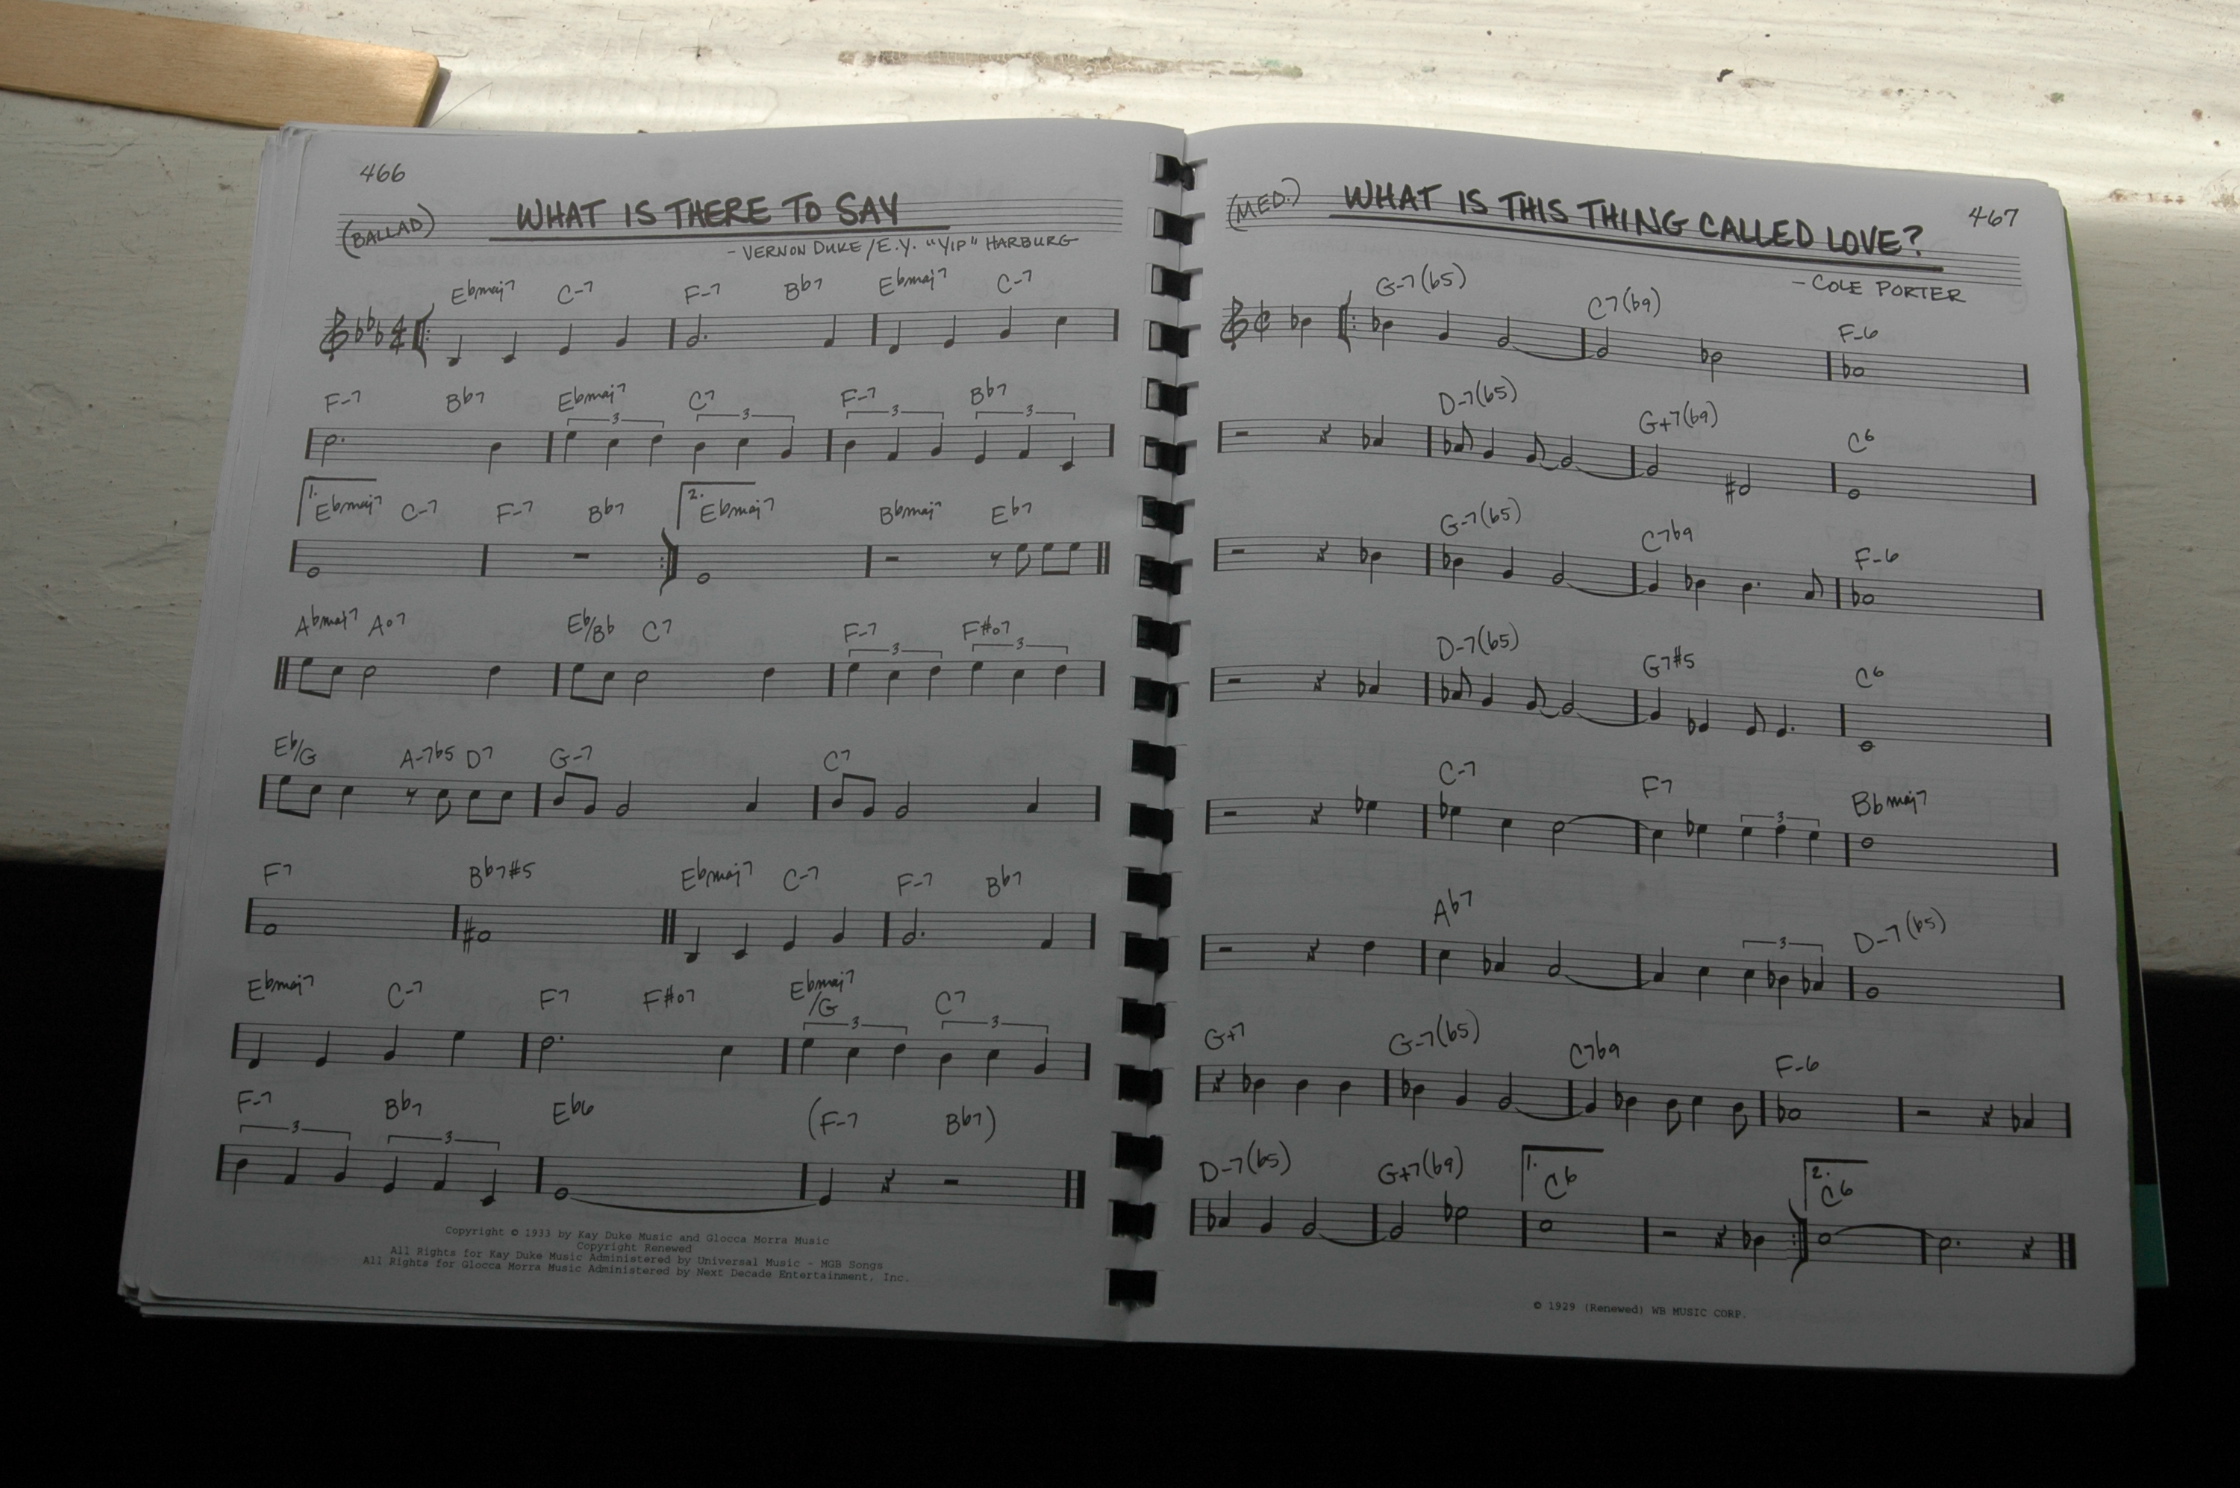 466
WHAT IS THERE TO SAY
(BALLAD)
- VERNON DUKE/E.Y. "YIP" HARBURG
Ebmaj7 C-7 F-7 Bb7 Ebmaj7 C-7
F-7 Bb7 Ebmaj7 C7 F-7 Bb7
3 3 3 3
1. Ebmaj7 C-7 F-7 Bb7 2. Ebmaj7 Bbmaj7 Eb7
Abmaj7 Ao7 Eb/Bb C7 F-7 F#o7
3 3
Eb/G A-7b5 D7 G-7 C7
F7 Bb7#5 Ebmaj7 C-7 F-7 Bb7
Ebmaj7 C-7 F7 F#o7 Ebmaj7/G C7
3 3
F-7 Bb7 Eb6 (F-7 Bb7)
3 3
Copyright © 1933 by Kay Duke Music and Glocca Morra Music
Copyright Renewed
All Rights for Kay Duke Music Administered by Universal Music - MGB Songs
All Rights for Glocca Morra Music Administered by Next Decade Entertainment, Inc.
467
(MED.)
WHAT IS THIS THING CALLED LOVE?
- COLE PORTER
G-7(b5) C7(b9) F-6
D-7(b5) G+7(b9) C6
G-7(b5) C7b9 F-6
D-7(b5) G7#5 C6
C-7 F7 Bbmaj7
3
Ab7 D-7(b5)
3
G+7 G-7(b5) C7b9 F-6
D-7(b5) G+7(b9) 1. C6 2. C6
© 1929 (Renewed) WB MUSIC CORP.